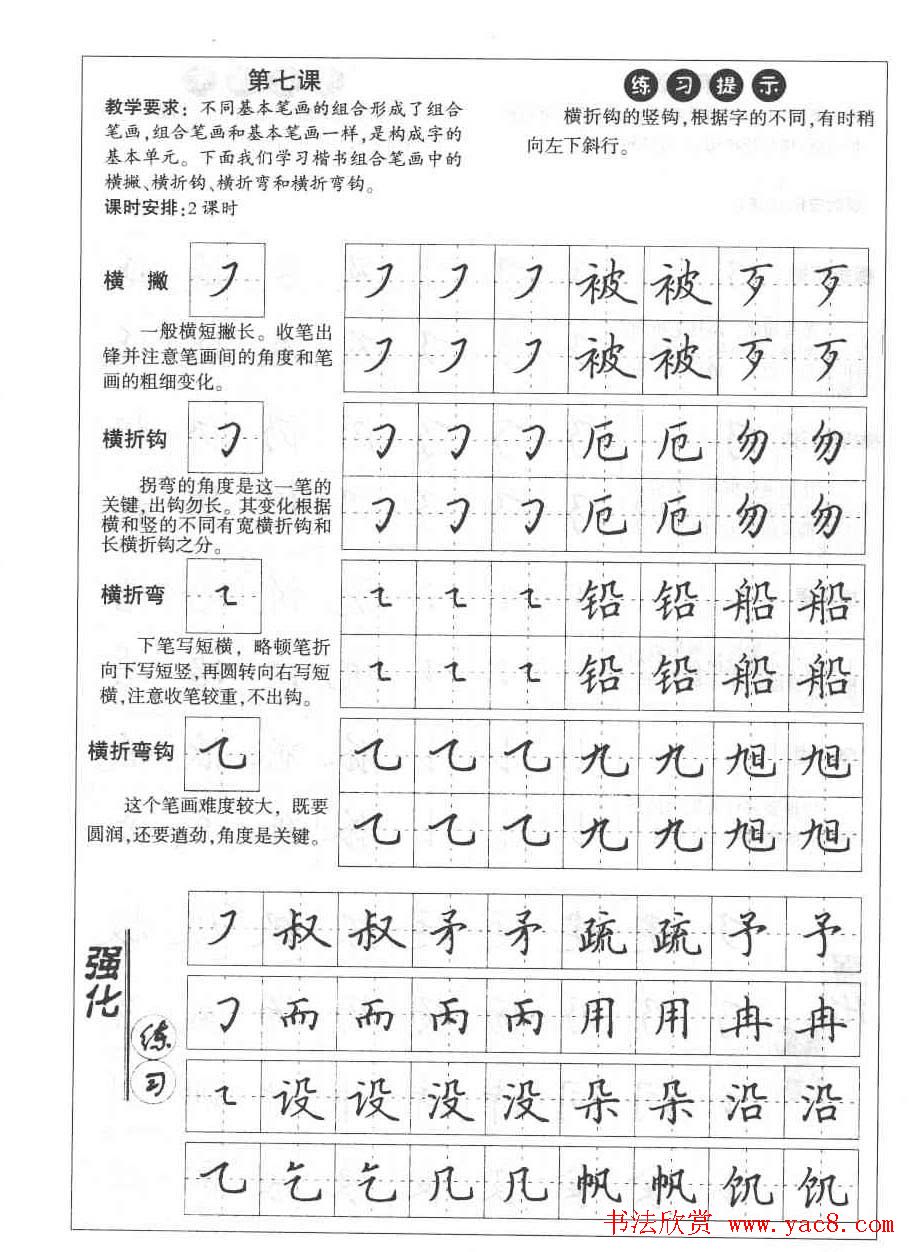 第七课
教学要求：不同基本笔画的组合形成了组合
笔画,组合笔画和基本笔画一样,是构成字的
基本单元。下面我们学习楷书组合笔画中的
横撇、横折钩、横折弯和横折弯钩。
课时安排:2课时
练习提示
横折钩的竖钩,根据字的不同,有时稍
向左下斜行。
横 撇
㇇ ㇇ ㇇ ㇇ 被 被 歹 歹
㇇ ㇇ ㇇ 被 被 歹 歹
一般横短撇长。收笔出
锋并注意笔画间的角度和笔
画的粗细变化。
横折钩
㇆ ㇆ ㇆ ㇆ 厄 厄 勿 勿
㇆ ㇆ ㇆ 厄 厄 勿 勿
拐弯的角度是这一笔的
关键,出钩勿长。其变化根据
横和竖的不同有宽横折钩和
长横折钩之分。
横折弯
㇍ ㇍ ㇍ ㇍ 铅 铅 船 船
㇍ ㇍ ㇍ 铅 铅 船 船
下笔写短横，略顿笔折
向下写短竖,再圆转向右写短
横,注意收笔较重,不出钩。
横折弯钩
乙 乙 乙 乙 九 九 旭 旭
乙 乙 乙 九 九 旭 旭
这个笔画难度较大，既要
圆润,还要遒劲,角度是关键。
强化
练习
㇇ 叔 叔 矛 矛 疏 疏 予 予
㇆ 而 而 丙 丙 用 用 冉 冉
㇍ 设 设 没 没 朵 朵 沿 沿
乙 乞 乞 凡 凡 帆 帆 饥 饥
书法欣赏 www.yac8.com